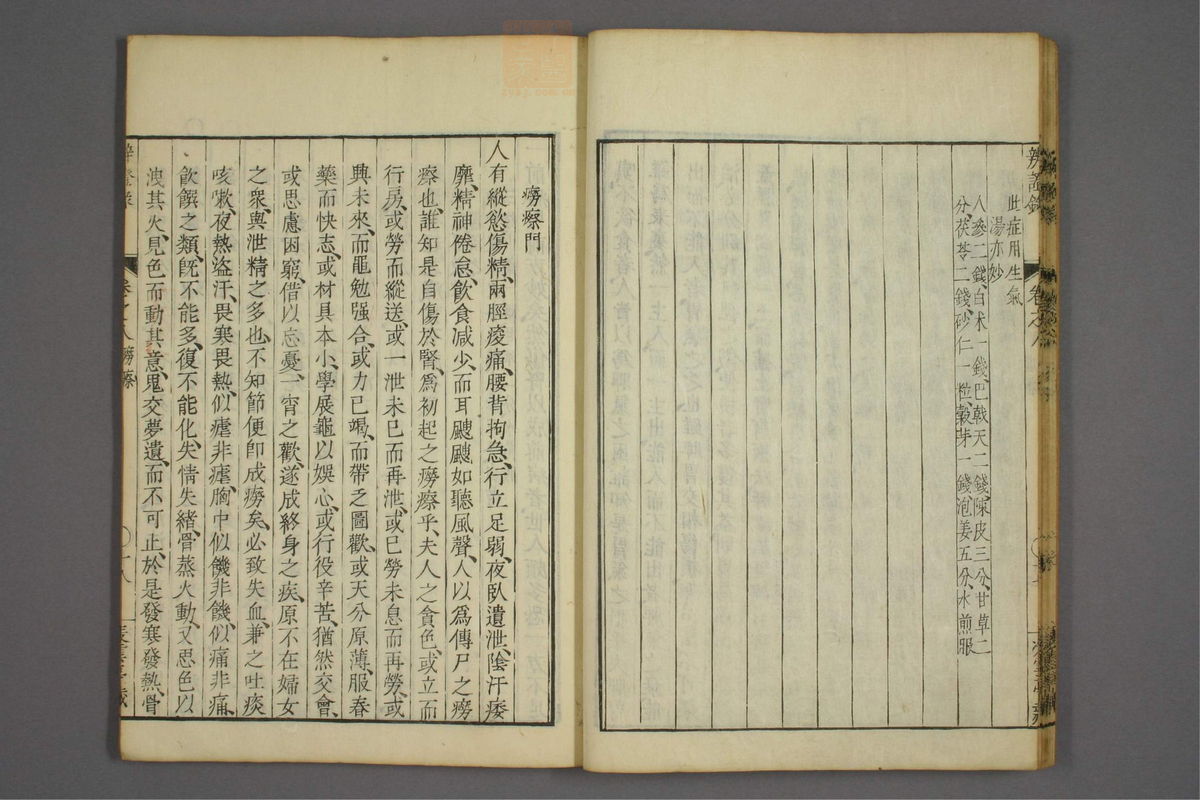 辨證錄
卷之八
此症用生氣
湯亦妙
人參二錢、白术一錢、巴戟天二錢、陳皮三分、甘草二
分、茯苓二錢、砂仁一粒、穀芽一錢、炮姜五分、水煎服
癆瘵門
人有縱慾傷精、兩脛痠痛、腰背拘急、行立足弱、夜臥遺泄、陰汗痿
靡、精神倦怠、飲食减少、而耳颼颼如聽風聲、人以爲傳尸之癆
瘵也、誰知是自傷於腎、爲初起之癆瘵乎、夫人之貪色、或立而
行房、或勞而縱送、或一泄未已而再泄、或已勞未息而再勞、或
興未來、而黽勉强合、或力已竭、而帶乏圖歡、或天分原薄、服春
藥而快志、或材具本小、學展龜以娛心、或行役辛苦、猶然交會、
或思慮困窮、借以忘憂、一宵之歡、遂成終身之疾、原不在婦女
之衆、與泄精之多也、不知節便卽成癆矣、必致失血、兼之吐痰
咳嗽、夜熱盗汗、畏寒畏熱、似瘧非瘧、胸中似饑非饑、似痛非痛、
飲饌之類、旣不能多、復不能化、失情失緒、骨蒸火動、又思色以
洩其火、見色而動其意、鬼交夢遺、而不可止、於是發寒發熱、骨
辨證錄
卷之八 癆瘵
十八